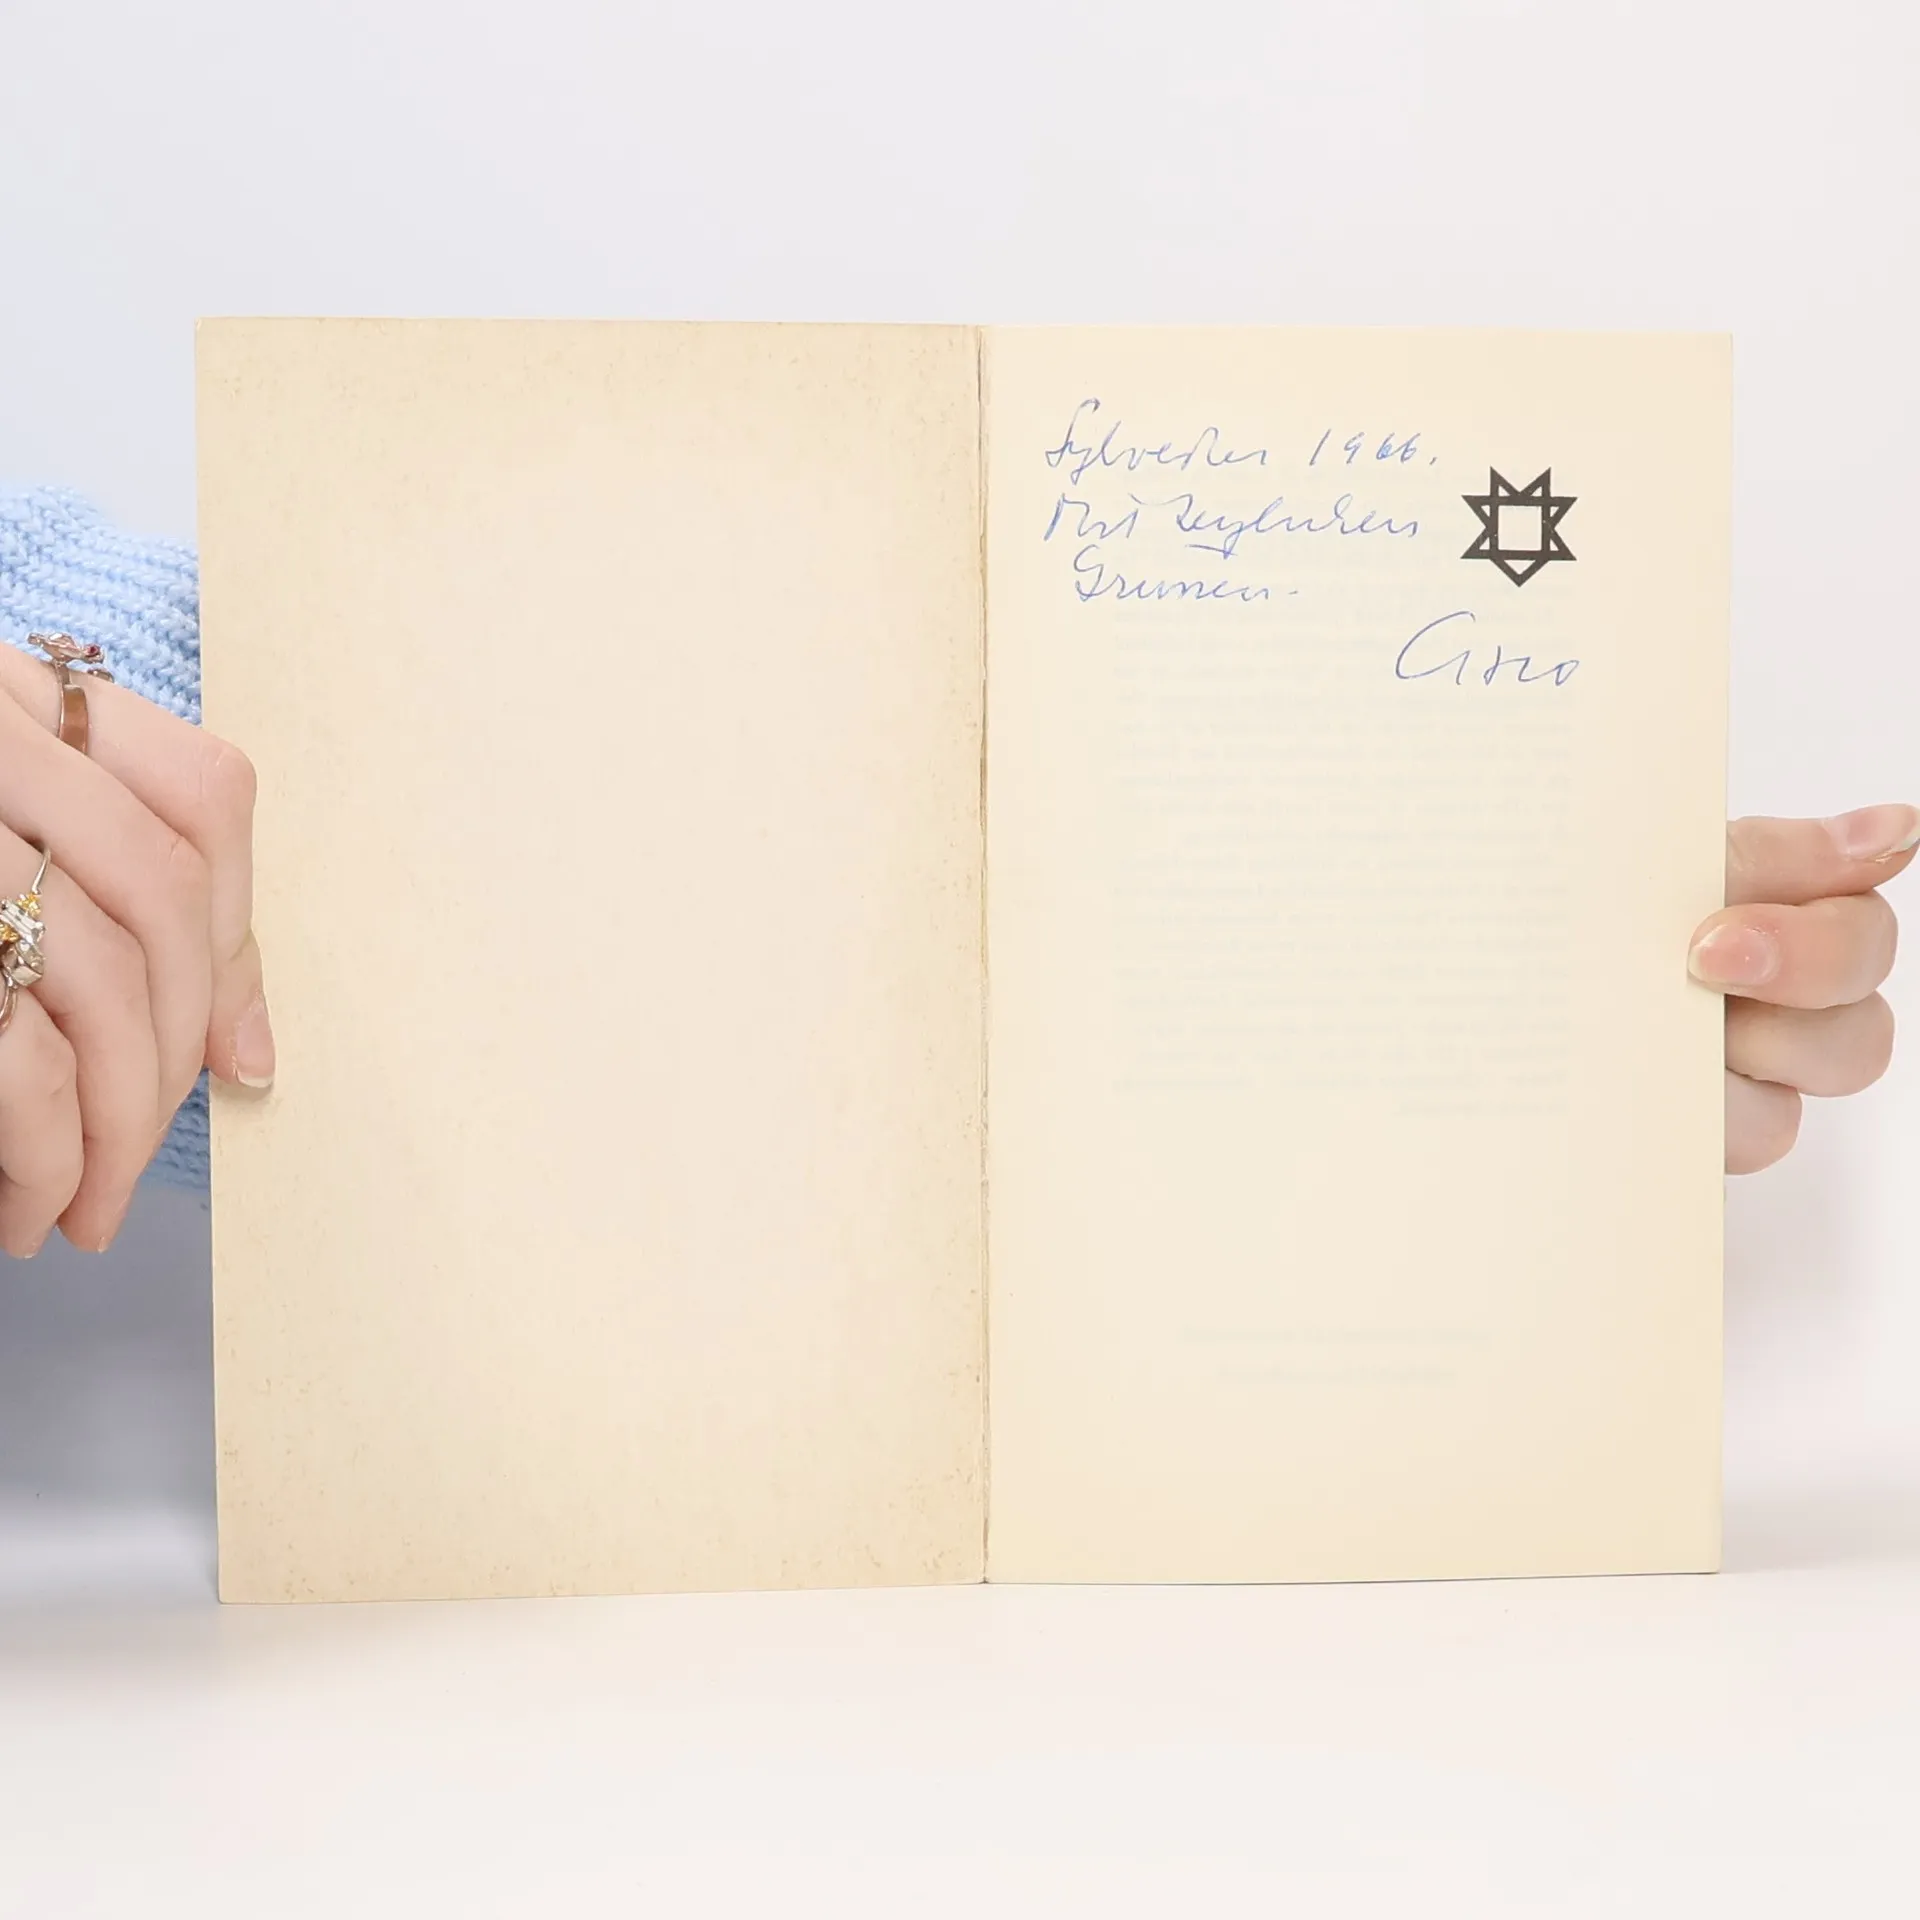 Sylvester 1966.
Mit herzlichen
Grüssen.